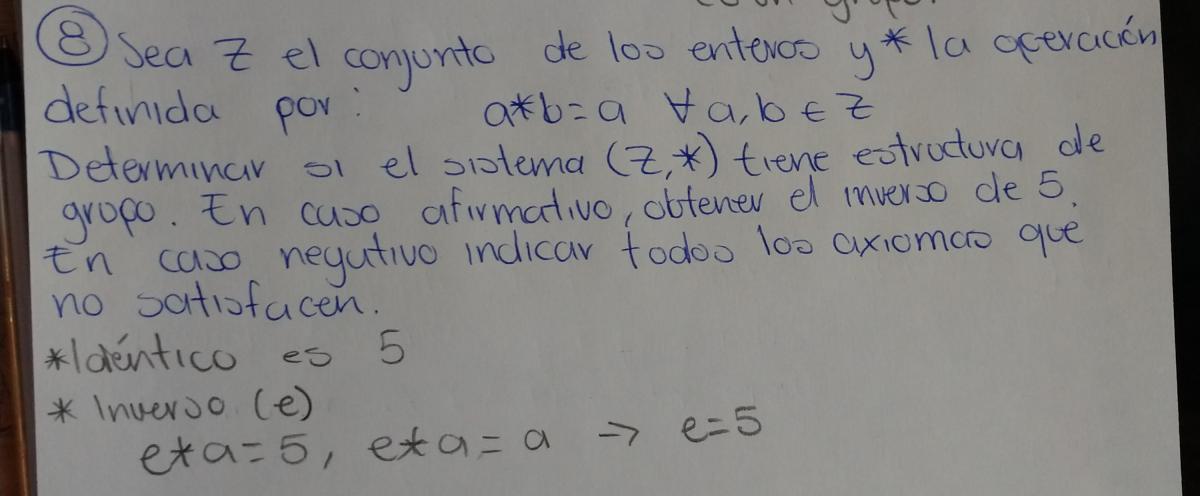 ⑧ Sea Z el conjunto de los enteros y * la operación
definida por: a*b=a ∀a,b ∈ Z
Determinar si el sistema (Z,*) tiene estructura de
grupo. En caso afirmativo, obtener el inverso de 5.
En caso negativo indicar todos los axiomas que
no satisfacen.
*Idéntico es 5
* Inverso (e)
e*a=5, e*a=a → e=5